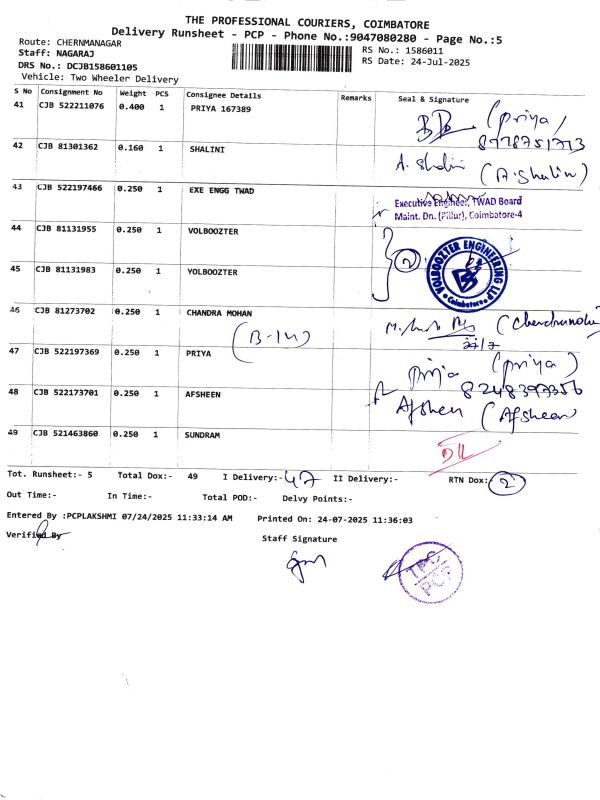 THE PROFESSIONAL COURIERS, COIMBATORE
Delivery Runsheet - PCP - Phone No.:9047080280 - Page No.:5
Route: CHERNMANAGAR
RS No.: 1586011
Staff: NAGARAJ
RS Date: 24-Jul-2025
DRS No.: DCJB158601105
Vehicle: Two Wheeler Delivery
S No Consignment No Weight PCS Consignee Details Remarks Seal & Signature
41 CJB 522211076 0.400 1 PRIYA 167389
(Priya)
8778751713
42 CJB 81301362 0.160 1 SHALINI
A. Shalini (A.Shalini)
43 CJB 522197466 0.250 1 EXE ENGG TWAD
Executive Engineer, TWAD Board
Maint. Dn. (Pillur), Coimbatore-4
44 CJB 81131955 0.250 1 VOLBOOZTER
2
VOLBOOZTER ENGINEERING LLP
Coimbatore
45 CJB 81131983 0.250 1 VOLBOOZTER
46 CJB 81273702 0.250 1 CHANDRA MOHAN
(B-14)
47 CJB 522197369 0.250 1 PRIYA
Priya (priya)
48 CJB 522173701 0.250 1 AFSHEEN
Afsheen (Afsheen)
49 CJB 521463860 0.250 1 SUNDRAM
DL
Tot. Runsheet:- 5 Total Dox:- 49 I Delivery:- 47 II Delivery:- RTN Dox: 2
Out Time:- In Time:- Total POD:- Delvy Points:-
Entered By :PCPLAKSHMI 07/24/2025 11:33:14 AM Printed On: 24-07-2025 11:36:03
Verified By
Staff Signature
TPC
PCP